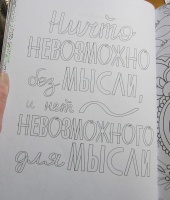 Ничто
НЕВОЗМОЖНО
без МЫСЛИ,
и нет
НЕВОЗМОЖНОГО
для МЫСЛИ